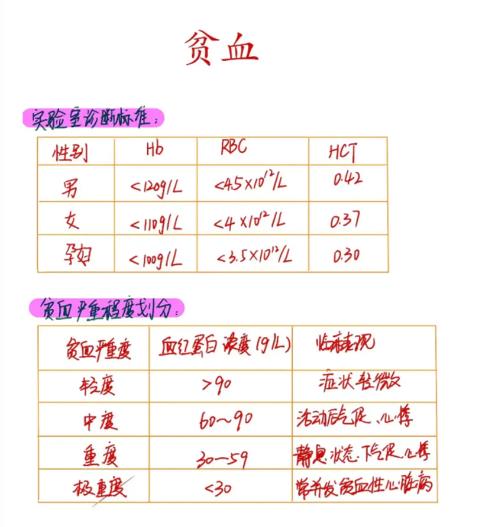 贫血
实验室诊断标准：
性别 Hb RBC HCT
男 <120g/L <4.5×10¹²/L 0.42
女 <110g/L <4×10¹²/L 0.37
孕妇 <100g/L <3.5×10¹²/L 0.30
贫血严重程度划分：
贫血严重度 血红蛋白浓度(g/L) 临床表现
轻度 >90 症状轻微
中度 60~90 活动后气促、心悸
重度 30~59 静息状态下气促、心悸
极重度 <30 常并发贫血性心脏病